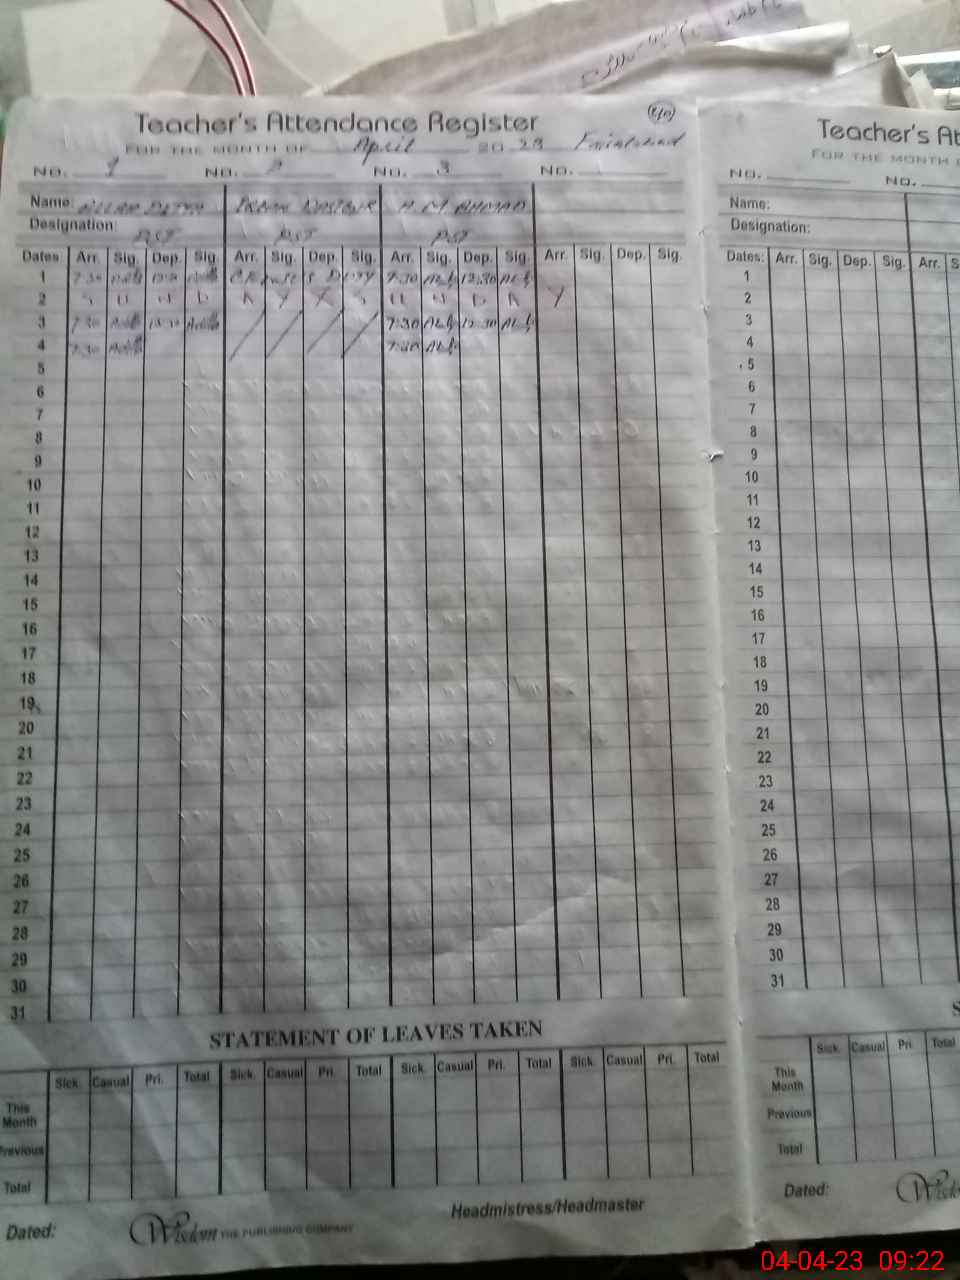 Teacher's Attendance Register
FOR THE MONTH OF April 20 23
No. 1 No. 2 No. 3 No.
Name: ALLAH DITTA H. M. AHMAD
Designation: PST PST PST
Dates Arr. Sig. Dep. Sig. Arr. Sig. Dep. Sig. Arr. Sig. Dep. Sig. Arr. Sig. Dep. Sig.
1 7:30 Duty 7:30 12:30
2 S U N D A Y S U N D A Y
3 7:30 12:30 7:30 12:30
4 7:30 7:30
5
6
7
8
9
10
11
12
13
14
15
16
17
18
19
20
21
22
23
24
25
26
27
28
29
30
31
STATEMENT OF LEAVES TAKEN
Sick. Casual Pri. Total Sick. Casual Pri. Total Sick. Casual Pri. Total Sick. Casual Pri. Total
This Month
Previous
Total
Headmistress/Headmaster
Dated: Wisdom THE PUBLISHING COMPANY
Teacher's At
FOR THE MONTH
No. No.
Name:
Designation:
Dates: Arr. Sig. Dep. Sig. Arr. S
1
2
3
4
5
6
7
8
9
10
11
12
13
14
15
16
17
18
19
20
21
22
23
24
25
26
27
28
29
30
31
S
Sick. Casual Pri. Total
This Month
Previous
Total
Dated: Wisd
04-04-23 09:22